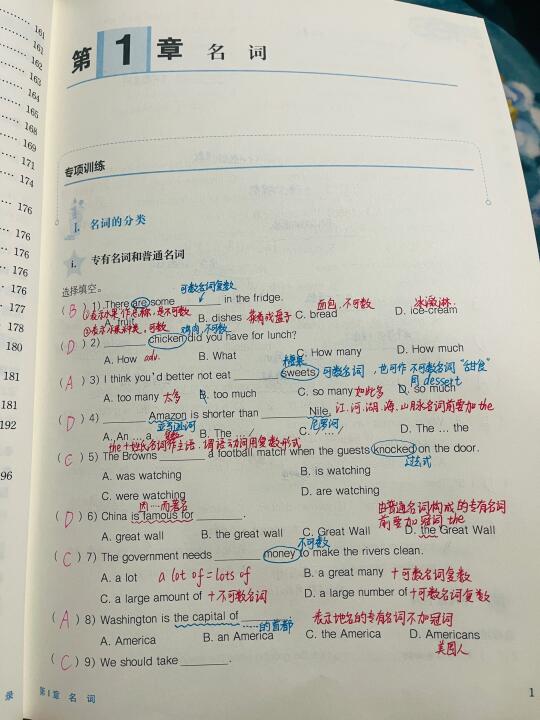 161
161
162
163
164
165
168
169
171
174
176
176
176
176
176
177
178
180
181
181
192
96
录
第1章 名词
专项训练
I. 名词的分类
i. 专有名词和普通名词
选择填空。
可数名词复数
(B) 1) There are some ______ in the fridge.
①表示水果作总称,是不可数
面包,不可数
冰激淋
A. fruit B. dishes 菜肴或盘子 C. bread D. ice-cream
②表示水果种类,可数 鸡肉,不可数
(D) 2) ______ chicken did you have for lunch?
A. How adv. B. What C. How many D. How much
糖果
(A) 3) I think you'd better not eat ______ sweets 可数名词,也可作不可数名词"甜食"
同 dessert
A. too many 太多 B. too much C. so many 如此多 D. so much
(D) 4) ______ Amazon is shorter than ______ Nile. 江、河、湖、海、山脉名词前要加the
亚马逊河 尼罗河
A. An … a B. The … / C. / … / D. The … the
the+姓氏名词作主语,谓语动词用复数形式
(C) 5) The Browns ______ a football match when the guests knocked on the door.
过去式
A. was watching B. is watching
C. were watching D. are watching
因…而著名
(D) 6) China is famous for ______.
由普通名词构成的专有名词
前要加冠词the
A. great wall B. the great wall C. Great Wall D. the Great Wall
不可数
(C) 7) The government needs ______ money to make the rivers clean.
A. a lot a lot of = lots of B. a great many +可数名词复数
C. a large amount of +不可数名词 D. a large number of +可数名词复数
(A) 8) Washington is the capital of ______. 表示地名的专有名词不加冠词
…的首都
A. America B. an America C. the America D. Americans
美国人
(C) 9) We should take ______.
第1章 名词
1